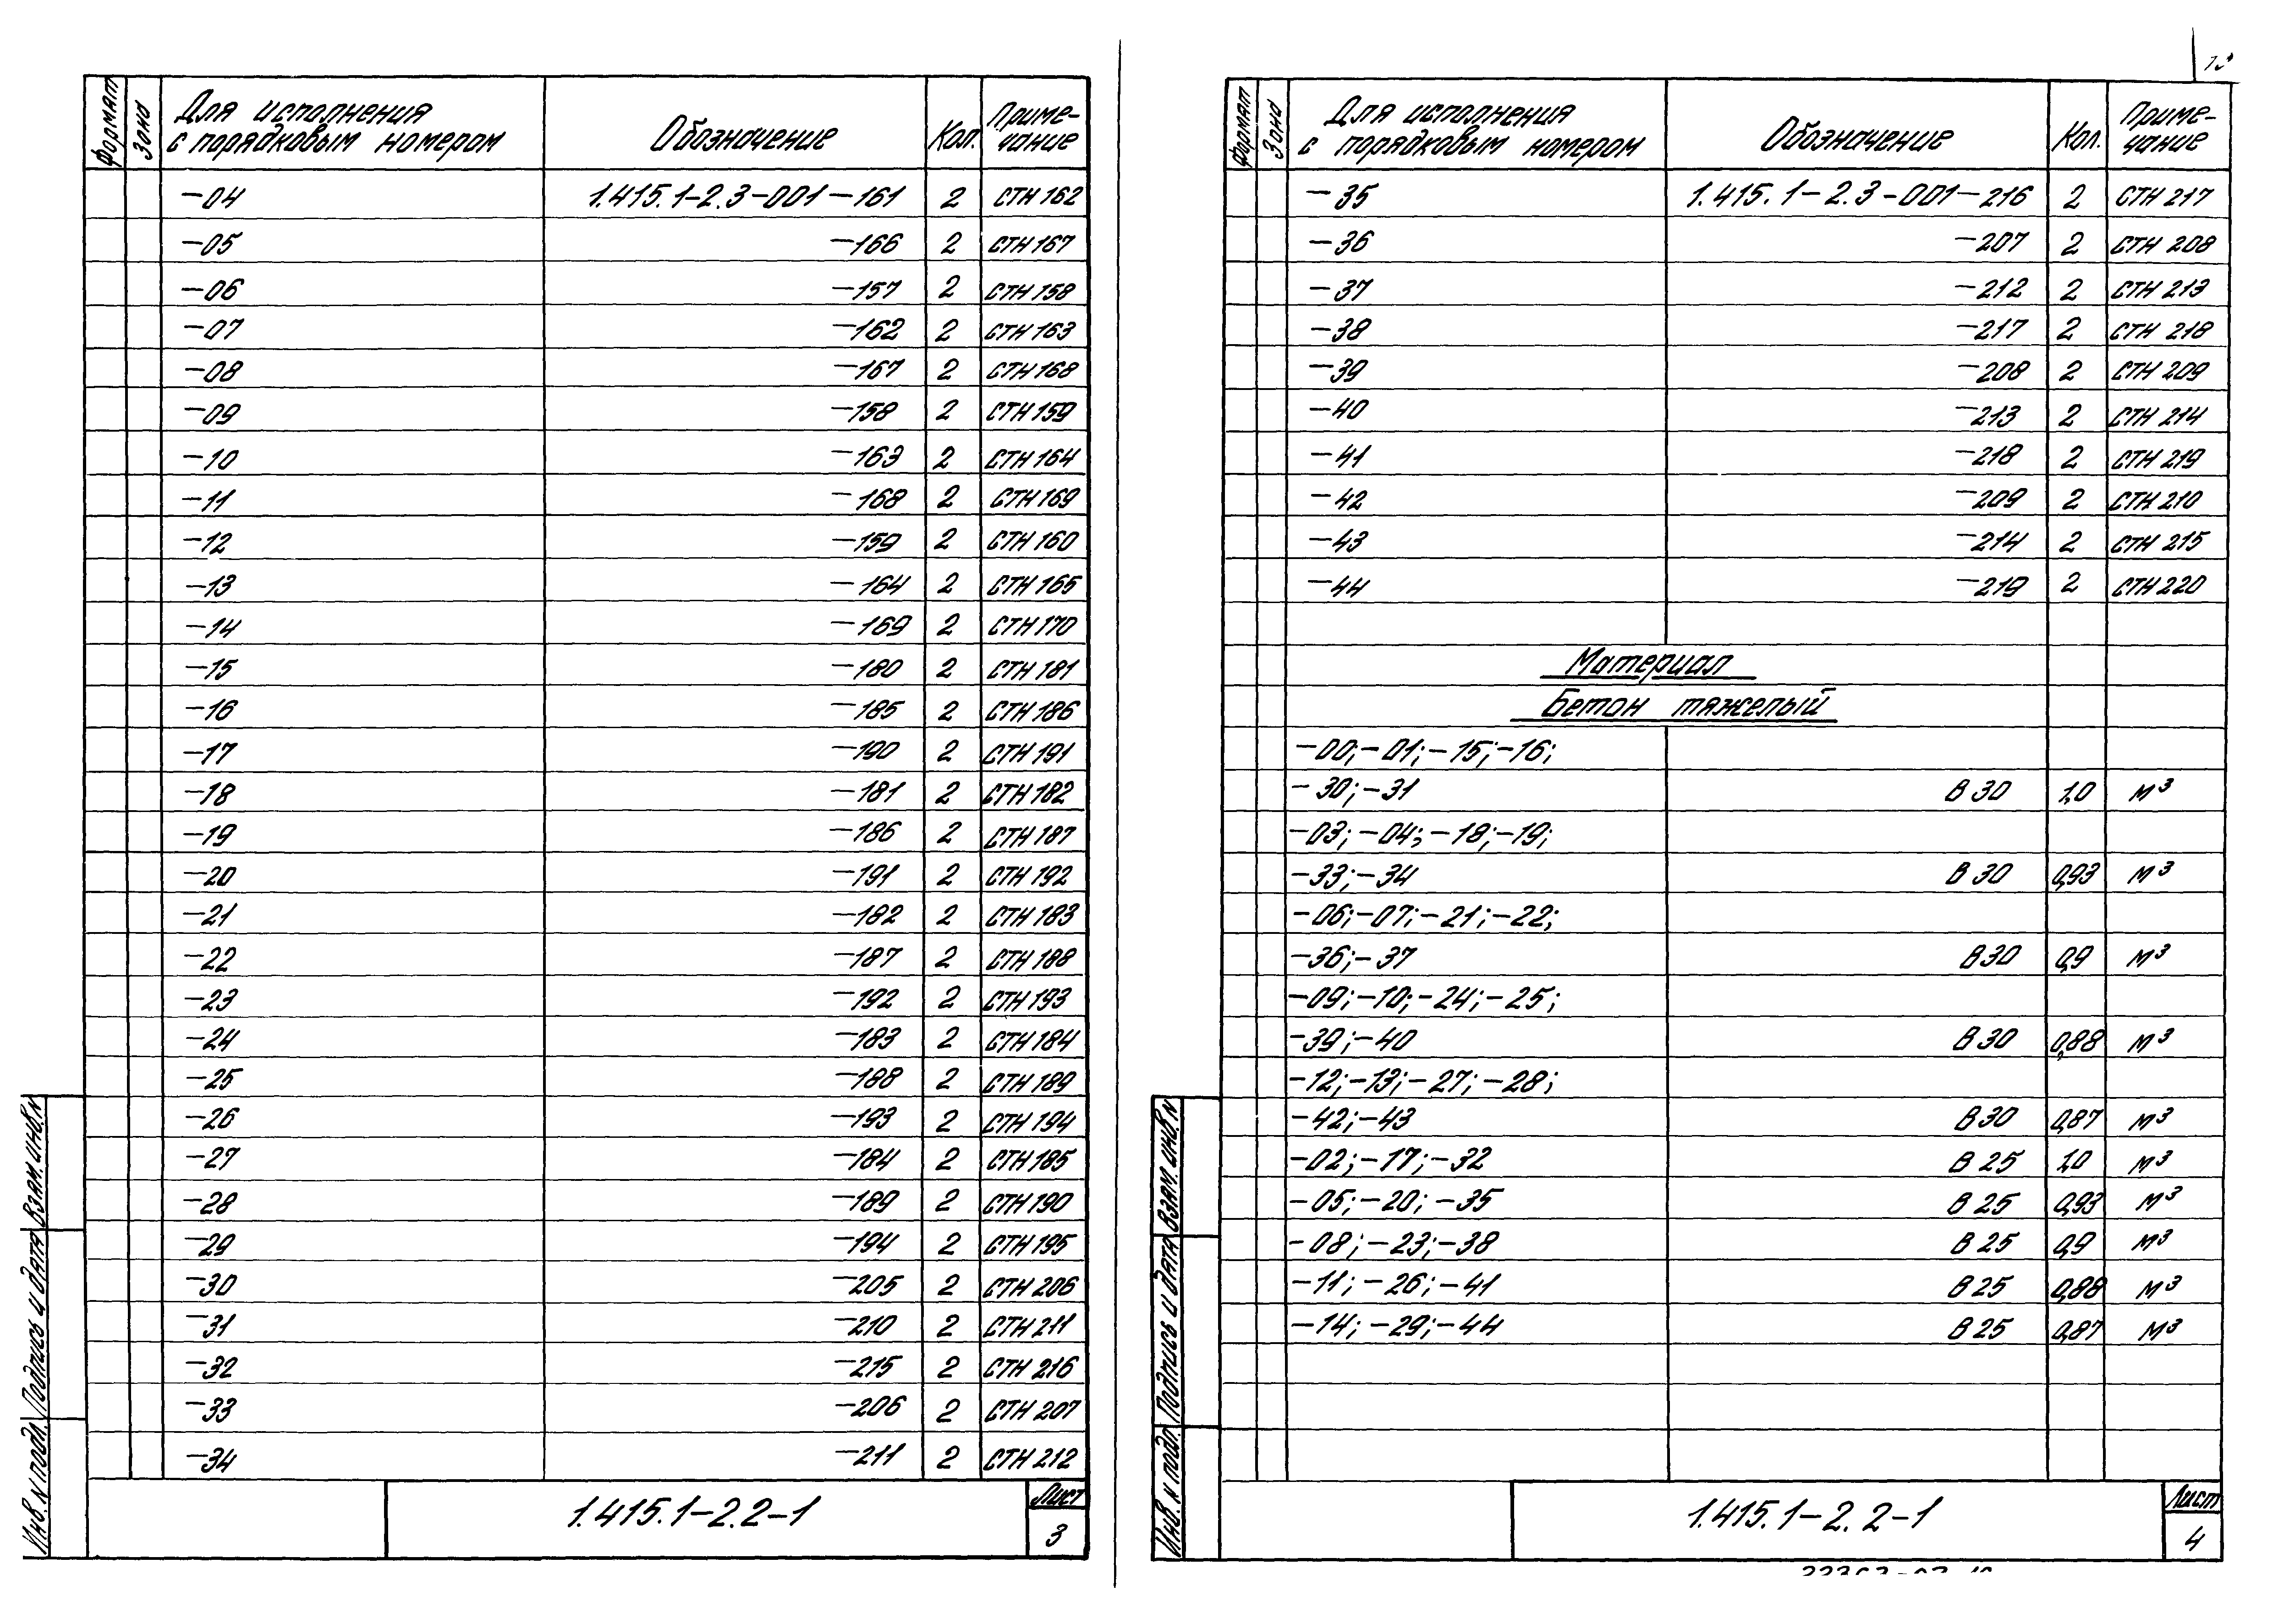 Формат Зона Для исполнения с порядковым номером Обозначение Кол. Приме-чание
-04 1.415.1-2.3-001-161 2 СТН 162
-05 -166 2 СТН 167
-06 -157 2 СТН 158
-07 -162 2 СТН 163
-08 -167 2 СТН 168
-09 -158 2 СТН 159
-10 -163 2 СТН 164
-11 -168 2 СТН 169
-12 -159 2 СТН 160
-13 -164 2 СТН 165
-14 -169 2 СТН 170
-15 -180 2 СТН 181
-16 -185 2 СТН 186
-17 -190 2 СТН 191
-18 -181 2 СТН 182
-19 -186 2 СТН 187
-20 -191 2 СТН 192
-21 -182 2 СТН 183
-22 -187 2 СТН 188
-23 -192 2 СТН 193
-24 -183 2 СТН 184
-25 -188 2 СТН 189
-26 -193 2 СТН 194
-27 -184 2 СТН 185
-28 -189 2 СТН 190
-29 -194 2 СТН 195
-30 -205 2 СТН 206
-31 -210 2 СТН 211
-32 -215 2 СТН 216
-33 -206 2 СТН 207
-34 -211 2 СТН 212
Инв. N подл. Подпись и дата Взам. инв. N
1.415.1-2.2-1
Лист
3
Формат Зона Для исполнения с порядковым номером Обозначение Кол. Приме-чание
-35 1.415.1-2.3-001-216 2 СТН 217
-36 -207 2 СТН 208
-37 -212 2 СТН 213
-38 -217 2 СТН 218
-39 -208 2 СТН 209
-40 -213 2 СТН 214
-41 -218 2 СТН 219
-42 -209 2 СТН 210
-43 -214 2 СТН 215
-44 -219 2 СТН 220
Материал
Бетон тяжелый
-00; -01; -15; -16;
-30; -31 В 30 1,0 м³
-03; -04; -18; -19;
-33; -34 В 30 0,93 м³
-06; -07; -21; -22;
-36; -37 В 30 0,9 м³
-09; -10; -24; -25;
-39; -40 В 30 0,88 м³
-12; -13; -27; -28;
-42; -43 В 30 0,87 м³
-02; -17; -32 В 25 1,0 м³
-05; -20; -35 В 25 0,93 м³
-08; -23; -38 В 25 0,9 м³
-11; -26; -41 В 25 0,88 м³
-14; -29; -44 В 25 0,87 м³
Инв. N подл. Подпись и дата Взам. инв. N
1.415.1-2.2-1
Лист
4